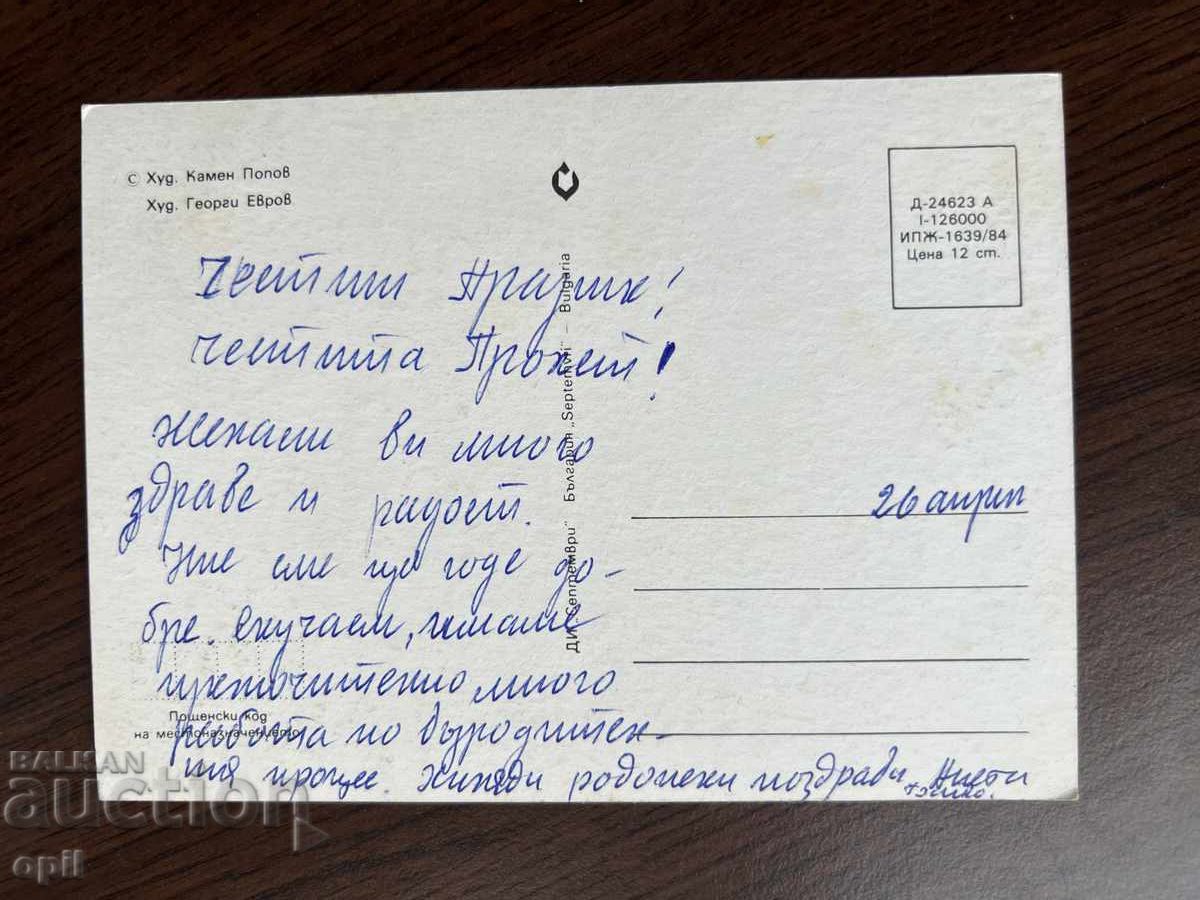 © Худ. Камен Попов
Худ. Георги Евров
Д-24623 А
I-126000
ИПЖ-1639/84
Цена 12 ст.
ДИ „Септември“ България „Septemvri“ – Bulgaria
Честит Празник!
Честита Пролет!
Желаем ви много
здраве и радост.
Ние сме що годе до-
бре. Скучаем, имаме
изключително много
работа по възродител-
ния процес. Хиляди родопски поздрави
26 април
Пощенски код
на местоназначението
BALKAN
auction
opil